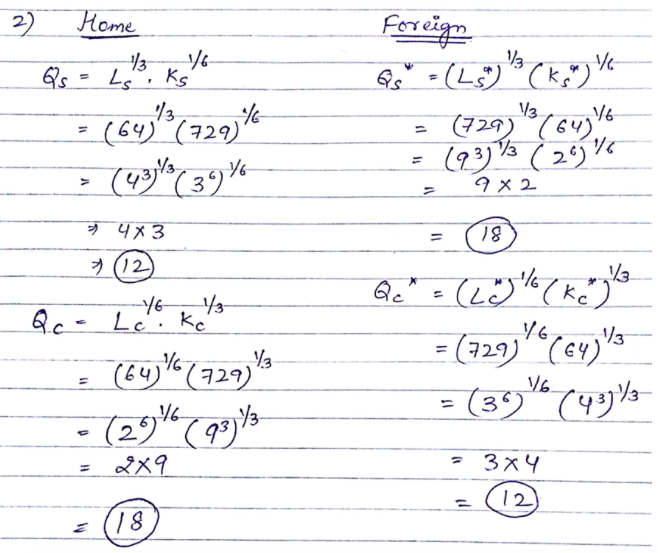 2) Home
Qs = Ls^1/3 . Ks^1/6
= (64)^1/3 (729)^1/6
= (4^3)^1/3 (3^6)^1/6
⇒ 4 x 3
⇒ 12
Qc = Lc^1/6 . Kc^1/3
= (64)^1/6 (729)^1/3
= (2^6)^1/6 (9^3)^1/3
= 2x9
= 18
Foreign
Qs* = (Ls*)^1/3 (Ks*)^1/6
= (729)^1/3 (64)^1/6
= (9^3)^1/3 (2^6)^1/6
= 9 x 2
= 18
Qc* = (Lc*)^1/6 (Kc*)^1/3
= (729)^1/6 (64)^1/3
= (3^6)^1/6 (4^3)^1/3
= 3 x 4
= 12